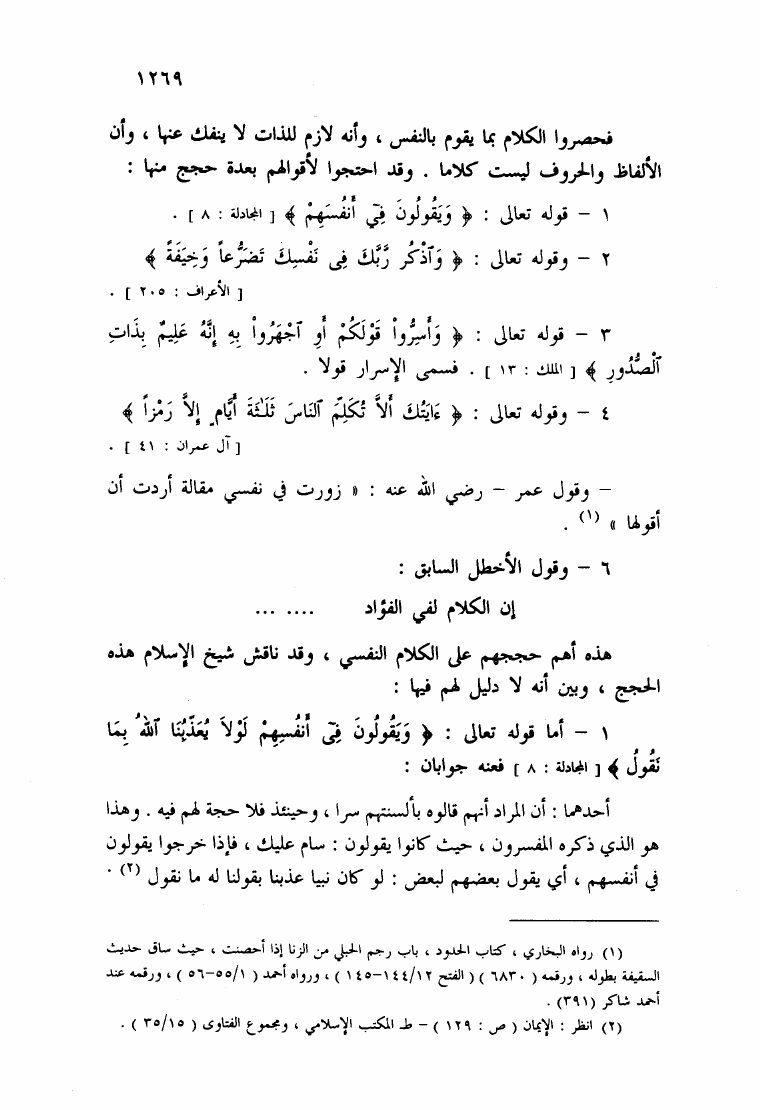 ١٢٦٩
فحصروا الكلام بما يقوم بالنفس ، وأنه لازم للذات لا ينفك عنها ، وأن
الألفاظ والحروف ليست كلاما . وقد احتجوا لأقوالهم بعدة حجج منها :
١ – قوله تعالى : ﴿ وَيَقُولُونَ فِيٓ أَنفُسَهِمْ ﴾ [ المجادلة : ٨ ] .
٢ – وقوله تعالى : ﴿ وَٱذْكُر رَّبَّكَ فِى نَفْسِكَ تَضَرُّعاً وَخِيَفَةً ﴾
[ الأعراف : ٢٠٥ ] .
٣ – قوله تعالى : ﴿ وَأَسِرُّواْ قَوْلَكُمْ أَوِ ٱجْهَرُواْ بِهِ إِنَّهُ عَلِيمٌ بِذَاتِ
ٱلْصُّدُورِ ﴾ [ الملك : ١٣ ] . فسمى الإسرار قولا .
٤ – وقوله تعالى : ﴿ ءَايَتُكَ أَلاَّ تُكَلِّمَ ٱلنَاسَ ثَلَـٰثَةَ أَيَّامٍ إِلاَّ رَمْزاً ﴾
[ آل عمران : ٤١ ] .
– وقول عمر – رضي الله عنه : « زورت في نفسي مقالة أردت أن
أقولها » (١) .
٦ – وقول الأخطل السابق :
إن الكلام لفي الفؤاد .... ...
هذه أهم حججهم على الكلام النفسي ، وقد ناقش شيخ الإسلام هذه
الحجج ، وبين أنه لا دليل لهم فيها :
١ – أما قوله تعالى : ﴿ وَيَقُولُونَ فِىٓ أَنفُسِهِمْ لَوْلاَ يُعَذِّبُنَا ٱللهُ بِمَا
نَقُولُ ﴾ [ المجادلة : ٨ ] فعنه جوابان :
أحدهما : أن المراد أنهم قالوه بألسنتهم سرا ، وحينئذ فلا حجة لهم فيه . وهذا
هو الذي ذكره المفسرون ، حيث كانوا يقولون : سام عليك ، فإذا خرجوا يقولون
في أنفسهم ، أي يقول بعضهم لبعض : لو كان نبيا عذبنا بقولنا له ما نقول (٢) .
(١) رواه البخاري ، كتاب الحدود ، باب رجم الحبلي من الزنا إذا أحصنت ، حيث ساق حديث
السقيفة بطوله ، ورقمه ( ٦٨٣٠ ) ( الفتح ١٤٤/١٢–١٤٥ ) ، ورواه أحمد ( ٥٥/١–٥٦ ) ، ورقمه عند
أحمد شاكر (٣٩١) .
(٢) انظر : الإيمان ( ص : ١٢٩ ) – ط المكتب الإسلامي ، ومجموع الفتاوى ( ٣٥/١٥ ) .